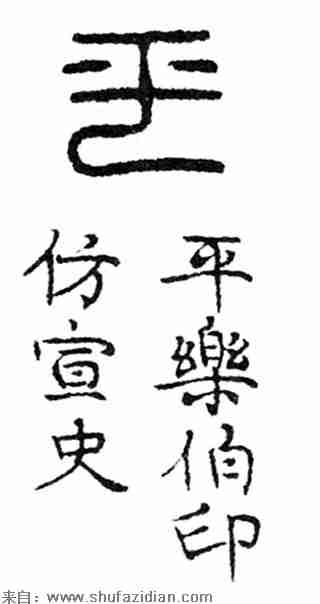 平
平樂伯印
仿宣史
来自：www.shufazidian.com